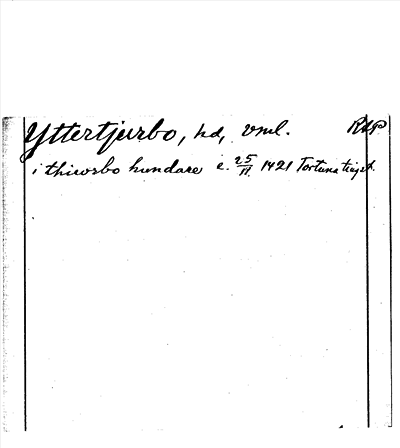 Yttertjurbo, hd, Vml. RAP
i thiworbo hundare e. 25/11 1421 Tortuna tingst.